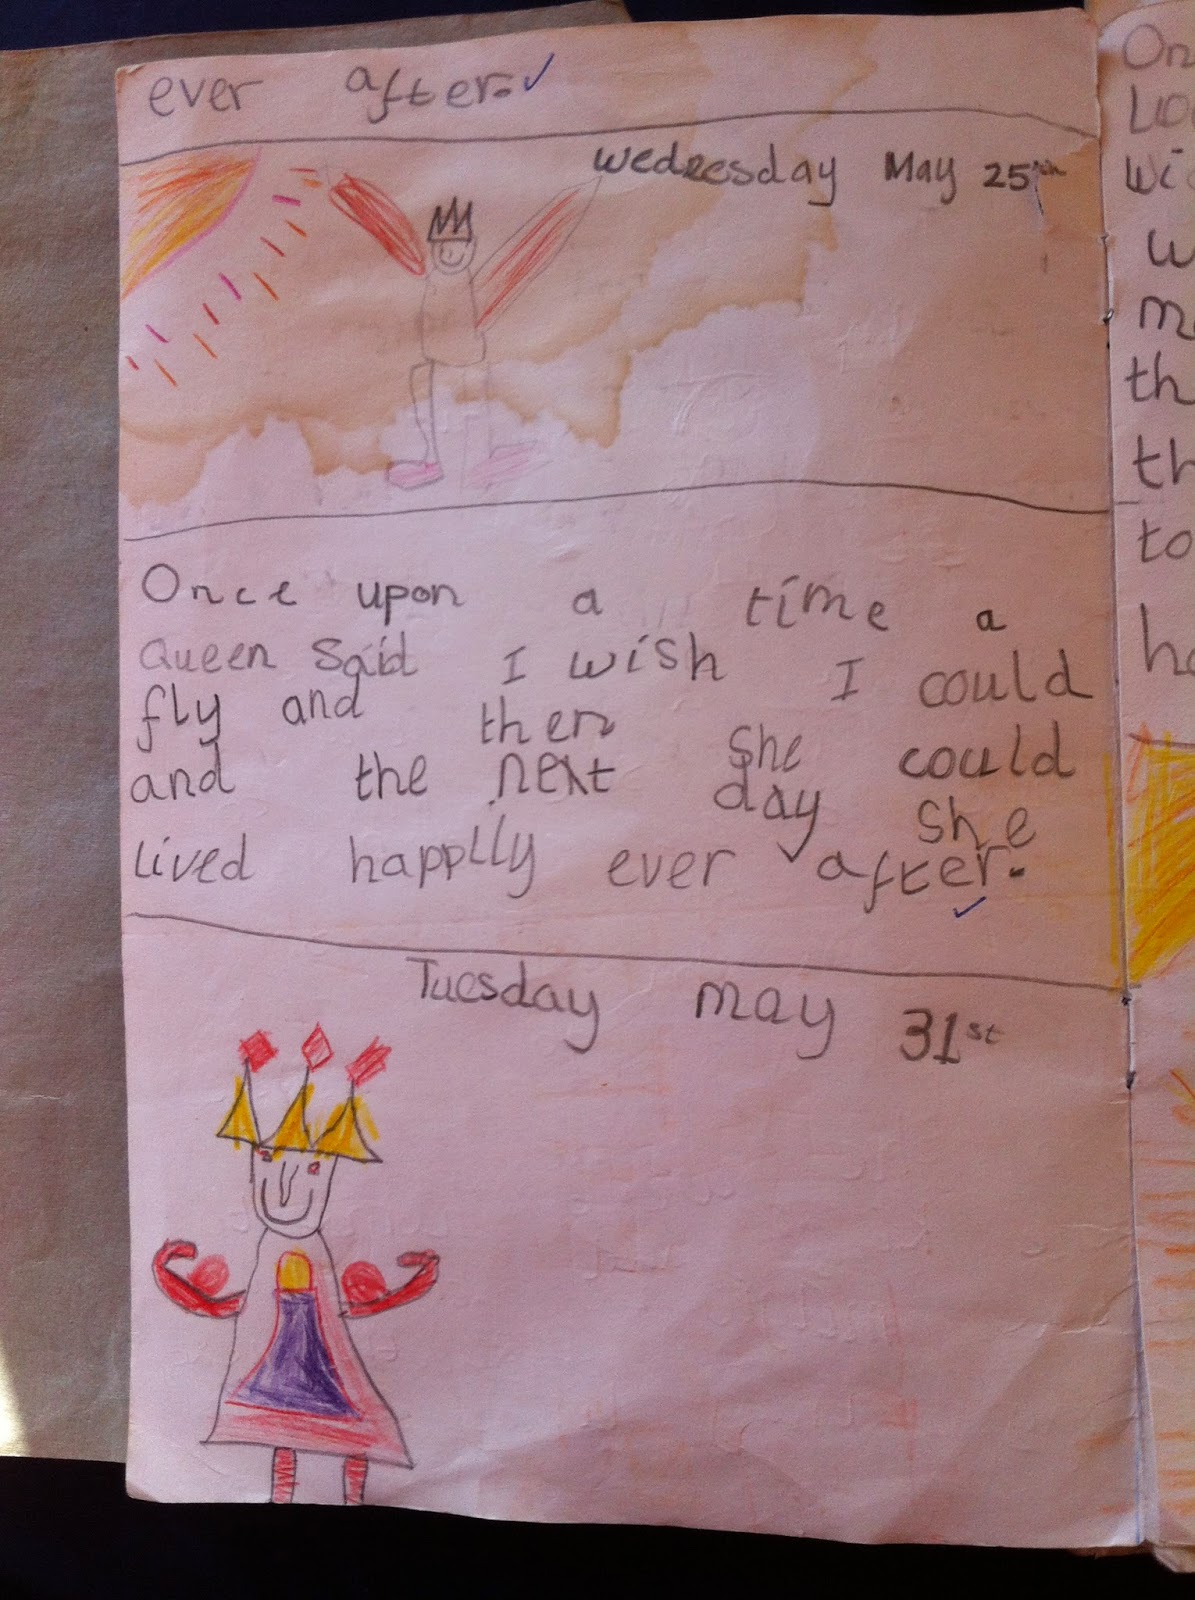 ever after.
Wednesday May 25th
Once upon a time a
Queen said I wish I could
fly and then she could
and the next day she
lived happlly ever after.
Tuesday may 31st
On
th
th
to